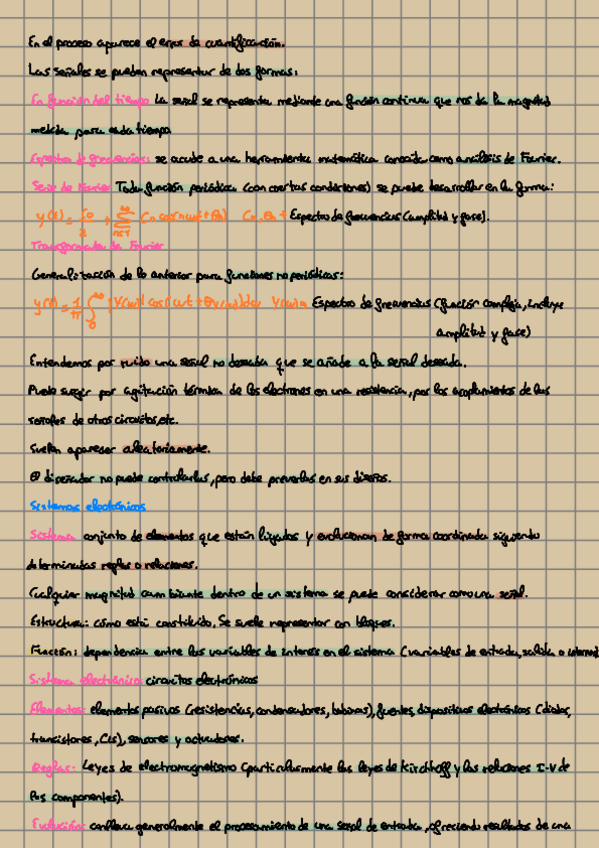 En el proceso aparece el error de cuantificación.
Las señales se pueden representar de dos formas:
En función del tiempo La señal se representa mediante una función continua que nos da la magnitud
medida para cada tiempo
Espectro de frecuencias: se acude a una herramienta matemática conocida como análisis de Fourier.
Serie de Fourier Toda función periódica (con ciertas condiciones) se puede desarrollar en la forma:
y(t) = c0/2 + ∑ n=1 ∞ Cn cos(nωt+θn) Cn, θn → Espectro de frecuencias (amplitud y fase).
Transformada de Fourier
Generalización de lo anterior para funciones no periódicas:
y(t) = 1/π ∫ 0 ∞ |Y(ω)| cos(ωt+θy(ω))dω Y(ω) → Espectro de frecuencias (función compleja, incluye
amplitud y fase)
Entendemos por ruido una señal no deseada que se añade a la señal deseada.
Puede surgir por agitación térmica de los electrones en una resistencia, por los acoplamientos de las
señales de otros circuitos, etc.
Suelen aparecer aleatoriamente.
El diseñador no puede controlarlas, pero debe preverlas en sus diseños.
Sistemas electrónicos
Sistema conjunto de elementos que están ligados y evolucionan de forma coordinada siguiendo
determinadas reglas o relaciones.
Cualquier magnitud cambiante dentro de un sistema se puede considerar como una señal.
Estructura: cómo está constituido, Se suele representar con bloques.
Función: dependencia entre las variables de interés en el sistema (variables de entrada, salida o internas)
Sistema electrónico: circuitos electrónicos
Elementos: elementos pasivos (resistencias, condensadores, bobinas), fuentes, dispositivos electrónicos (diodos,
transistores, CIs), sensores y actuadores.
Reglas: Leyes de electromagnetismo (particularmente las leyes de Kirchhoff y las relaciones I-V de
los componentes).
Evolución: conlleva generalmente el procesamiento de una señal de entrada, ofreciendo resultados de una